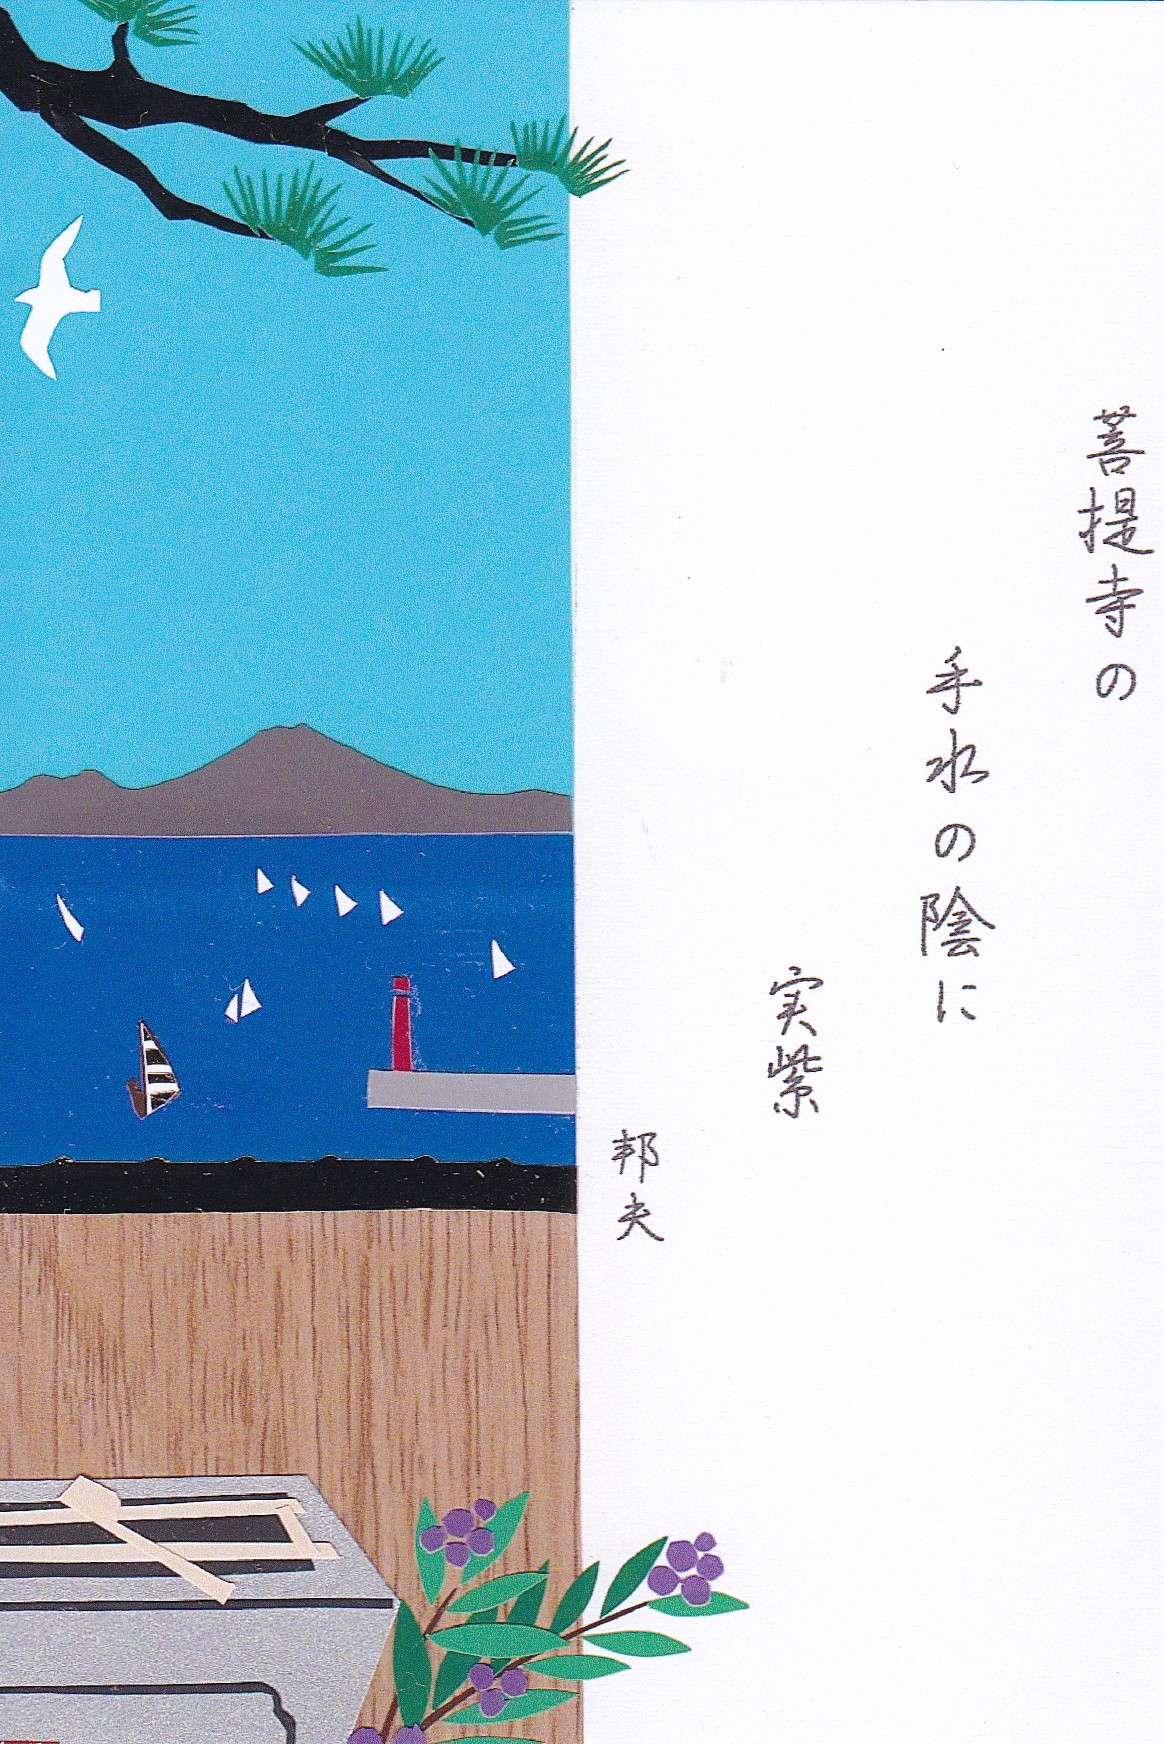 菩提寺の
手水の陰に
実紫
邦夫